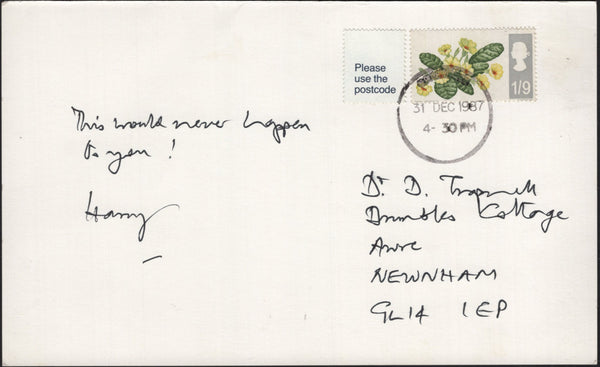 Please
use the
postcode
1/9
31 DEC 1987
4- 30 PM
This would never happen
to you!
Harry
Dr. D.
Cottage
Awre
NEWNHAM
GL14 1EP